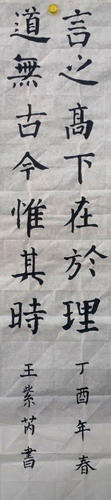 言之高下在於理
道無古今惟其時
丁酉年春
王紫芮書